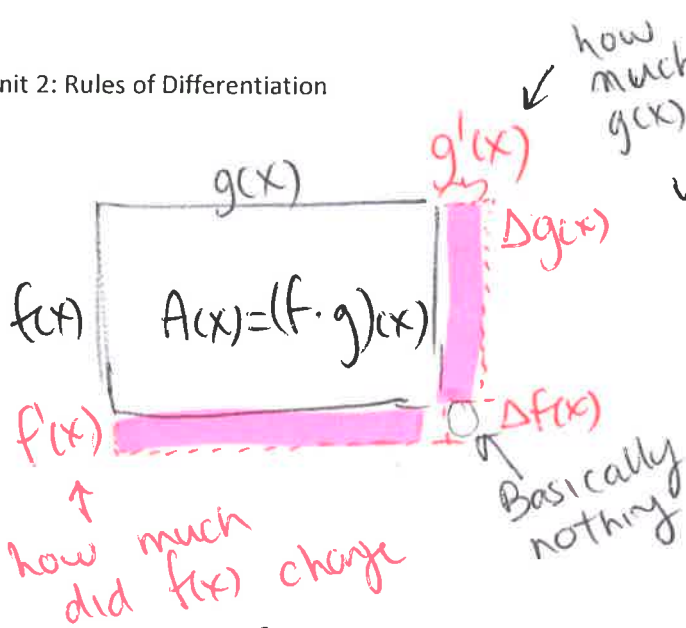 nit 2: Rules of Differentiation
how
much
g(x)
g'(x)
g(x)
Δg(x)
f(x)
A(x)=(f·g)(x)
f'(x)
Δf(x)
Basically
nothing
how much
did f(x) change